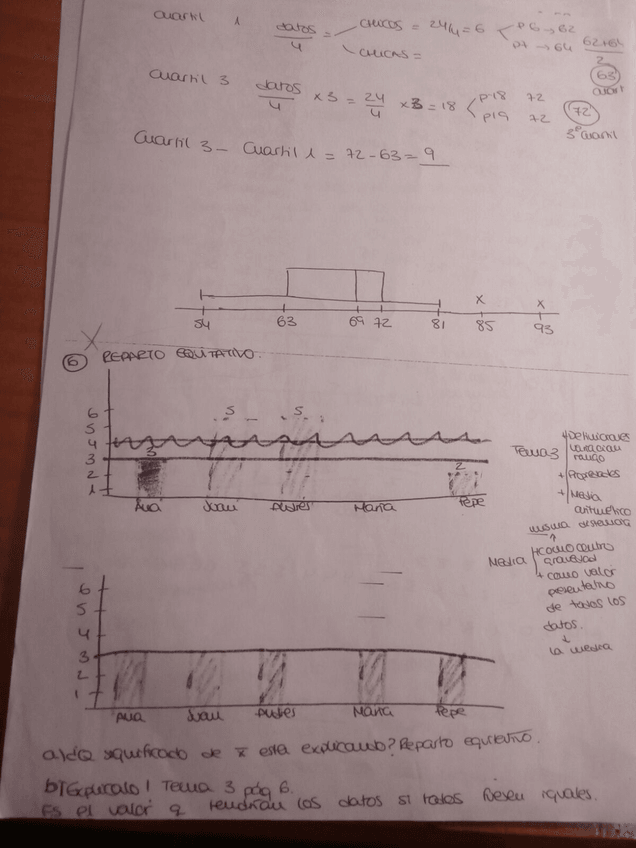 Cuartil 1 datos/4 = CHICOS = 24/4 = 6 P6 → 62
CHICAS = P7 → 64 62+64/2
63
Cuartil 3 datos/4 x 3 = 24/4 x 3 = 18 P18 72
P19 72 72
3º Cuartil
Cuartil 3 - Cuartil 1 = 72 - 63 = 9
x x
54 63 69 72 81 85 93
6 REPARTO EQUITATIVO.
6 5 5
5
4
3 3
2 2
1
Ana Juan Andrés María Pepe
Tema 3 + Definiciones
variación
rango
+ Propiedades
+ Media
aritmético
misma distancia
Media + como centro
gravedad
+ como valor
presentativo
de todos los
datos.
↓
la media
6
5
4
3
2
1
Ana Juan Andrés María Pepe
a) ¿Q significado de x̄ está explicando? Reparto equitativo.
b) ¡Explicalo! Tema 3 pág 6.
Es el valor q tendrían los datos si todos fuesen iguales.